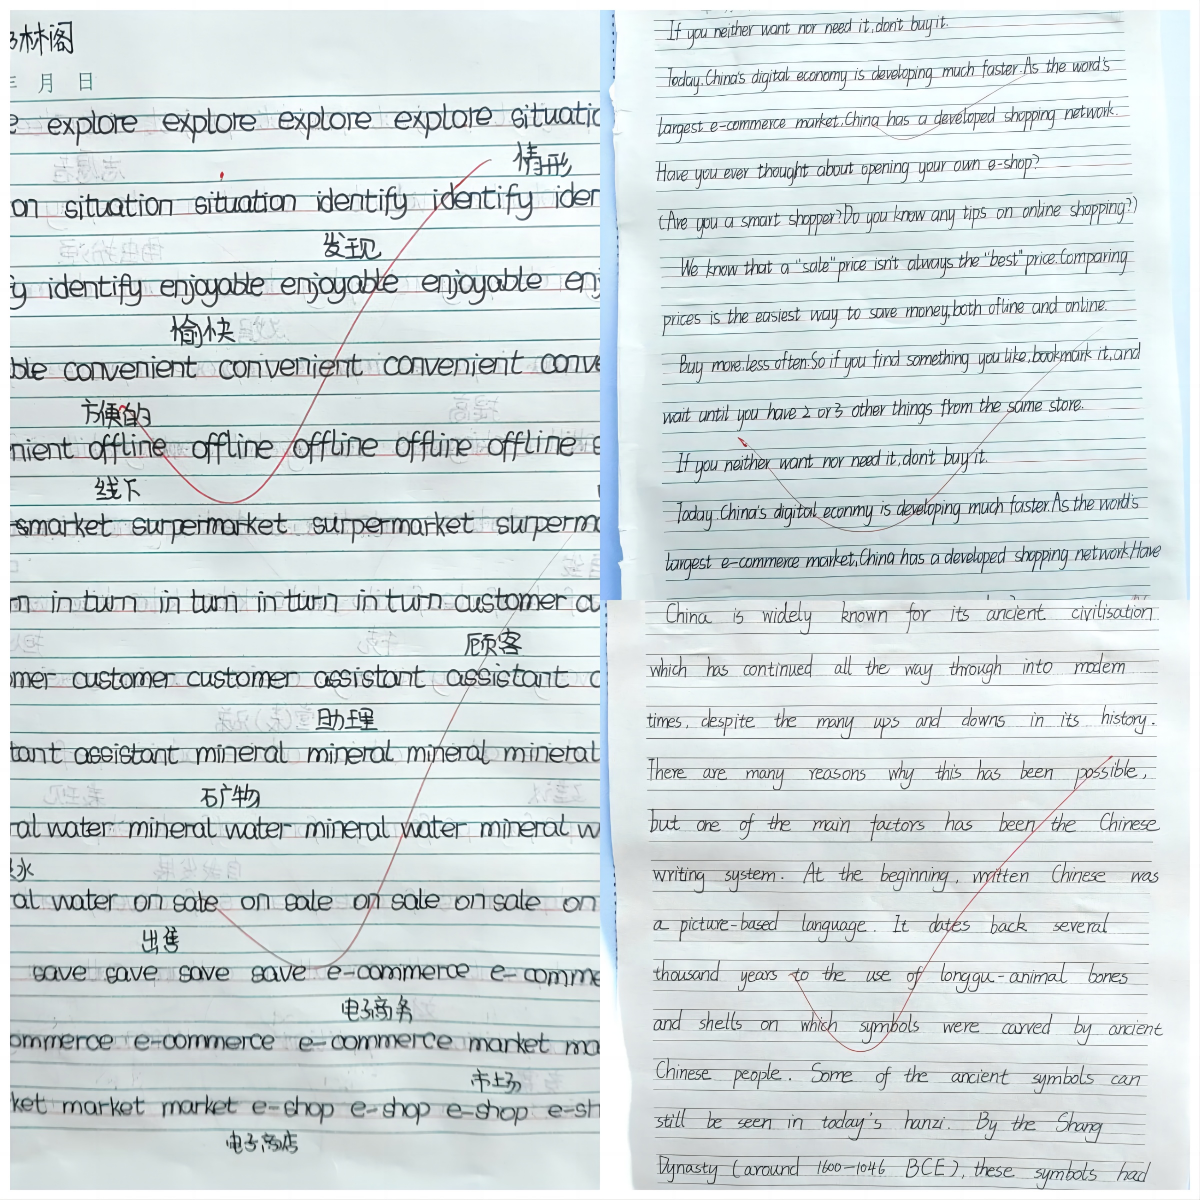 林阁
年 月 日
explore explore explore explore
情形
on situation situation identify identify
发现
y identify enjoyable enjoyable enjoyable
愉快
ble convenient convenient convenient
方便的
nient offline offline offline offline offline
线下
smarket surpermarket surpermarket
in turn in turn in turn in turn customer
顾客
mer customer customer assistant assistant
助理
tant assistant mineral mineral mineral mineral
矿物
al water mineral water mineral water mineral
水
al water on sale on sale on sale on sale on
出售
save save save save e-commerce
电子商务
ommerce e-commerce e-commerce market
市场
ket market market e-shop e-shop e-shop
电子商店
If you neither want nor need it,don't buy it.
Today.China's digital economy is developing much faster.As the word's
largest e-commerce market,China has a developed shopping network.
Have you ever thought about opening your own e-shop?
(Are you a smart shopper?Do you know any tips on online shopping?)
We know that a "sale"price isn't always the "best"price.Comparing
prices is the easiest way to save money,both ofline and online.
Buy more.less often.So if you find something you like,bookmark it,and
wait until you have 2 or 3 other things from the same store.
If you neither want nor need it,don't buy it.
Today.China's digital econmy is developing much faster.As the word's
largest e-commerce market,China has a developed shopping network.Have
China is widely known for its ancient civilisation
which has continued all the way through into modern
times, despite the many ups and downs in its history.
There are many reasons why this has been possible,
but one of the main factors has been the Chinese
writing system. At the beginning, written Chinese was
a picture-based language. It dates back several
thousand years to the use of longgu-animal bones
and shells on which symbols were carved by ancient
Chinese people. Some of the ancient symbols can
still be seen in today's hanzi. By the Shang
Dynasty (around 1600-1046 BCE), these symbols had